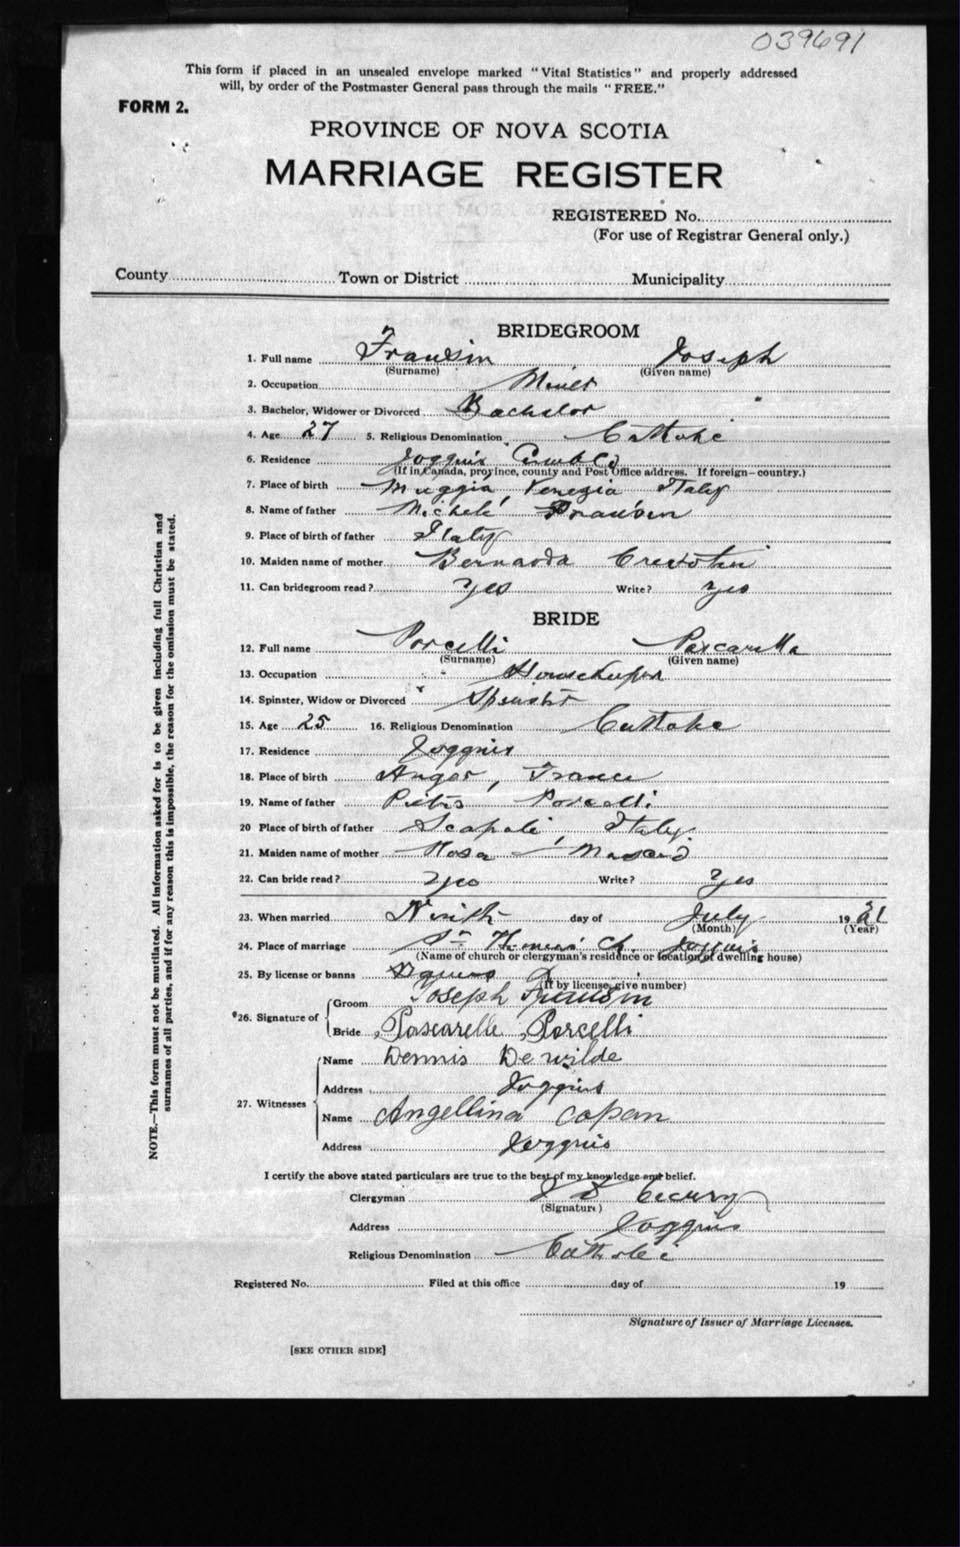 039691
This form if placed in an unsealed envelope marked "Vital Statistics" and properly addressed
will, by order of the Postmaster General pass through the mails "FREE."
FORM 2.
PROVINCE OF NOVA SCOTIA
MARRIAGE REGISTER
REGISTERED No.
(For use of Registrar General only.)
County Town or District Municipality
BRIDEGROOM
1. Full name Frausin Joseph
(Surname) (Given name)
2. Occupation Miner
3. Bachelor, Widower or Divorced Bachelor
4. Age 27 5. Religious Denomination Catholic
6. Residence Joggins Cumb Co
(If in Canada, province, county and Post Office address. If foreign—country.)
7. Place of birth Muggia, Venezia Italy
8. Name of father Michele Frausin
9. Place of birth of father Italy
10. Maiden name of mother Bernarda
11. Can bridegroom read? Yes Write? Yes
BRIDE
12. Full name Porcelli Pascarella
(Surname) (Given name)
13. Occupation Housekeeper
14. Spinster, Widow or Divorced Spinster
15. Age 25 16. Religious Denomination Catholic
17. Residence Joggins
18. Place of birth Anger, France
19. Name of father Pietro Porcelli
20 Place of birth of father Scapoli, Italy
21. Maiden name of mother Rosa
22. Can bride read? Yes Write? Yes
23. When married Ninth day of July 1921
(Month) (Year)
24. Place of marriage St Thomas' Ch. Joggins
(Name of church or clergyman's residence or location of dwelling house)
25. By license or banns
(If by license, give number)
*26. Signature of Groom Joseph Frausin
Bride Pascarelle Porcelli
27. Witnesses
Name Dennis De wilde
Address Joggins
Name Angellina Copan
Address Joggins
I certify the above stated particulars are true to the best of my knowledge and belief.
Clergyman J D
(Signature)
Address Joggins
Religious Denomination Catholic
Registered No. Filed at this office day of 19
Signature of Issuer of Marriage Licenses.
[SEE OTHER SIDE]
NOTE.—This form must not be mutilated. All information asked for is to be given including full Christian and
surnames of all parties, and if for any reason this is impossible, the reason for the omission must be stated.